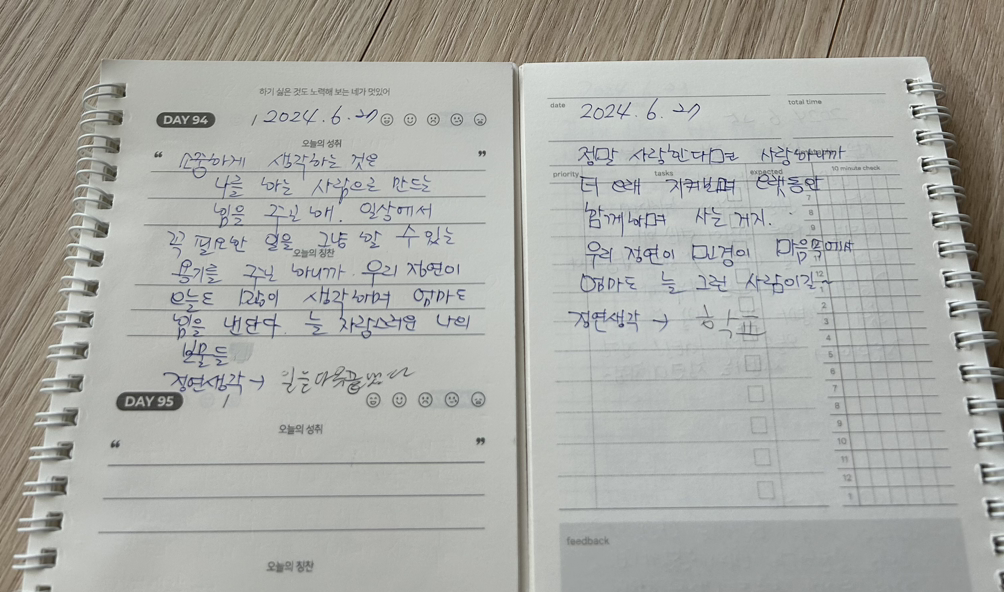 하기 싫은 것도 노력해 보는 네가 멋있어
DAY 94
2024.6.27
오늘의 성취
“ 소중하게 생각하는 것은 ”
나를 아는 사람으로 만드는
힘을 주닌 애. 일상에서
꼭 필요한 일을 그냥 할 수 있는
오늘의 칭찬
용기를 주닌 아니까 우리 정연이
오늘도 많이 생각하며 엄마도
힘을 낸단다. 늘 자랑스러운 나의
보물들
정연생각→
DAY 95
오늘의 성취
“ ”
오늘의 칭찬
date 2024.6.27 total time
정말 사랑한다면 사랑하니까
priority tasks expected 10 minute check
더 오래 지켜보며 오랫동안
7
8
함께하며 사는 거지.
9
우리 정연이 민경이 마음속에서
12
엄마도 늘 그런 사람이길~
2
정연생각 →
3
4
5
6
7
8
9
10
11
12
1
feedback